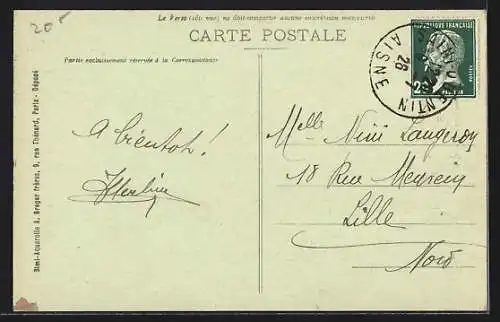 20 F
Le Verso (dit vue) ne doit comporter aucune inscription manuscrite
CARTE POSTALE
Partie exclusivement réservée à la Correspondance
RÉPUBLIQUE FRANÇAISE
QUENTIN
26
AISNE
A bientôt!
Melle Nini Langeron
18 Rue
Lille
Nord
Simi-Aquarelle A. Breger frères, 9, rue Thénard, Paris - Déposé